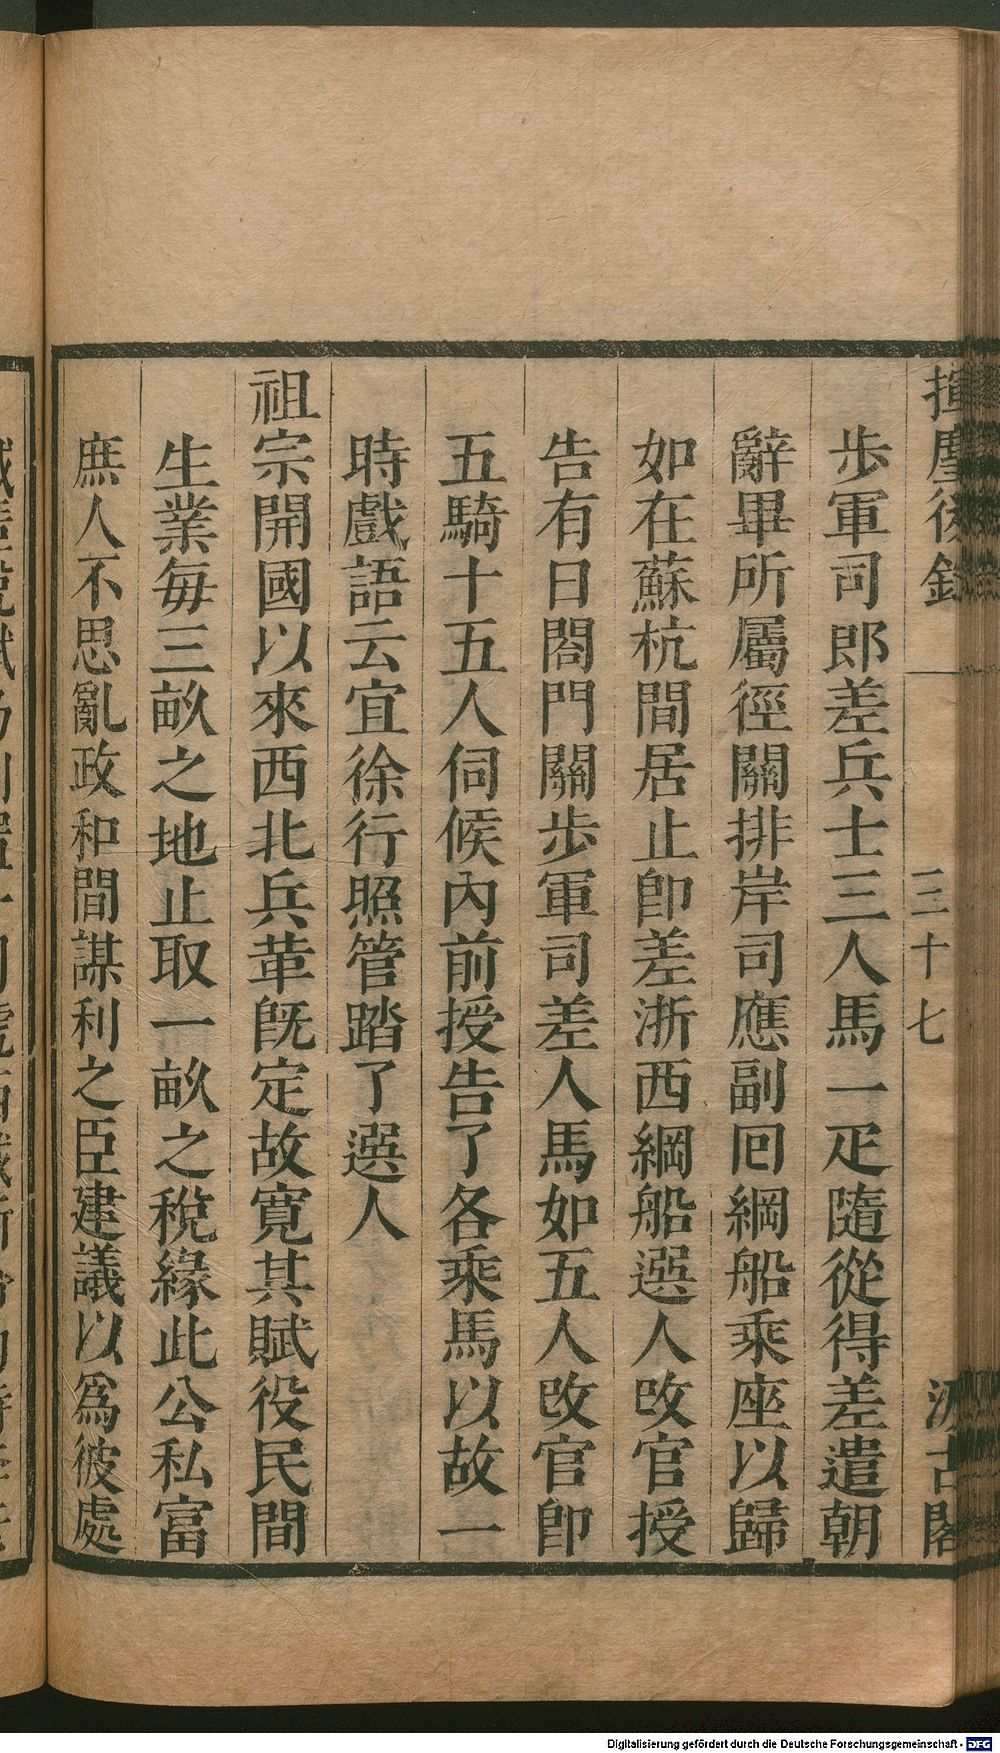 揮麈後錄
三十七
汲古閣
步軍司郎差兵士三人馬一疋隨從得差遣朝
辭畢所屬徑關排岸司應副囘綱船乘座以歸
如在蘇杭間居止卽差浙西綱船選人改官授
告有日閤門關步軍司差人馬如五人改官卽
五騎十五人伺候內前授告了各乘馬以故一
時戲語云宜徐行照管踏了選人
祖宗開國以來西北兵革旣定故寬其賦役民間
生業每三畝之地止取一畝之稅緣此公私富
庶人不思亂政和間謀利之臣建議以爲彼處
Digitalisierung gefördert durch die Deutsche Forschungsgemeinschaft - DFG